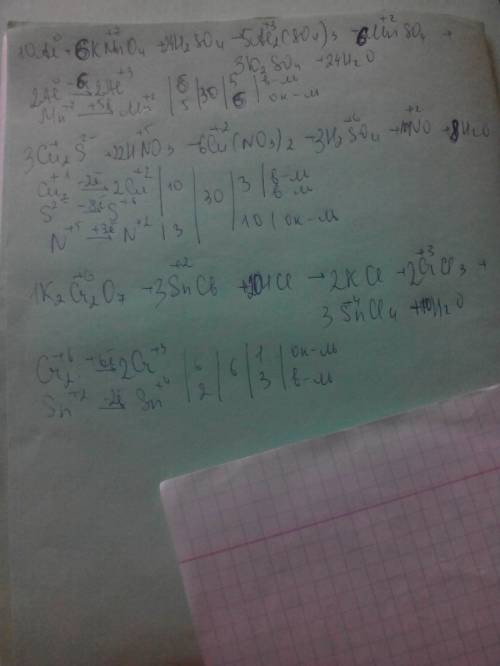 10Al⁰ + 6KMnO₄ + 24H₂SO₄ → 5Al₂⁺³(SO₄)₃ + 6Mn⁺²SO₄ +
3K₂SO₄ + 24H₂O
2Al⁰ –6ē→ 2Al⁺³ | 6 | 30 | 5 | в-ль
Mn⁺⁷ +5ē→ Mn⁺² | 5 | | 6 | ок-ль
3Cu₂⁺S²⁻ + 22HN⁺⁵O₃ → 6Cu⁺²(NO₃)₂ + 3H₂S⁺⁶O₄ + 10N⁺²O + 8H₂O
Cu₂⁺¹ –2ē→ 2Cu⁺² | 10 | 30 | 3 | в-ль
S²⁻ –8ē→ S⁺⁶ | в-ль
N⁺⁵ +3ē→ N⁺² | 3 | | 10 | ок-ль
1K₂Cr₂⁺⁶O₇ + 3Sn⁺²Cl₂ + HCl → 2KCl + 2Cr⁺³Cl₃ +
3Sn⁺⁴Cl₄ + H₂O
Cr₂⁺⁶ +6ē→ 2Cr⁺³ | 6 | 6 | 1 | ок-ль
Sn⁺² –2ē→ Sn⁺⁴ | 2 | | 3 | в-ль